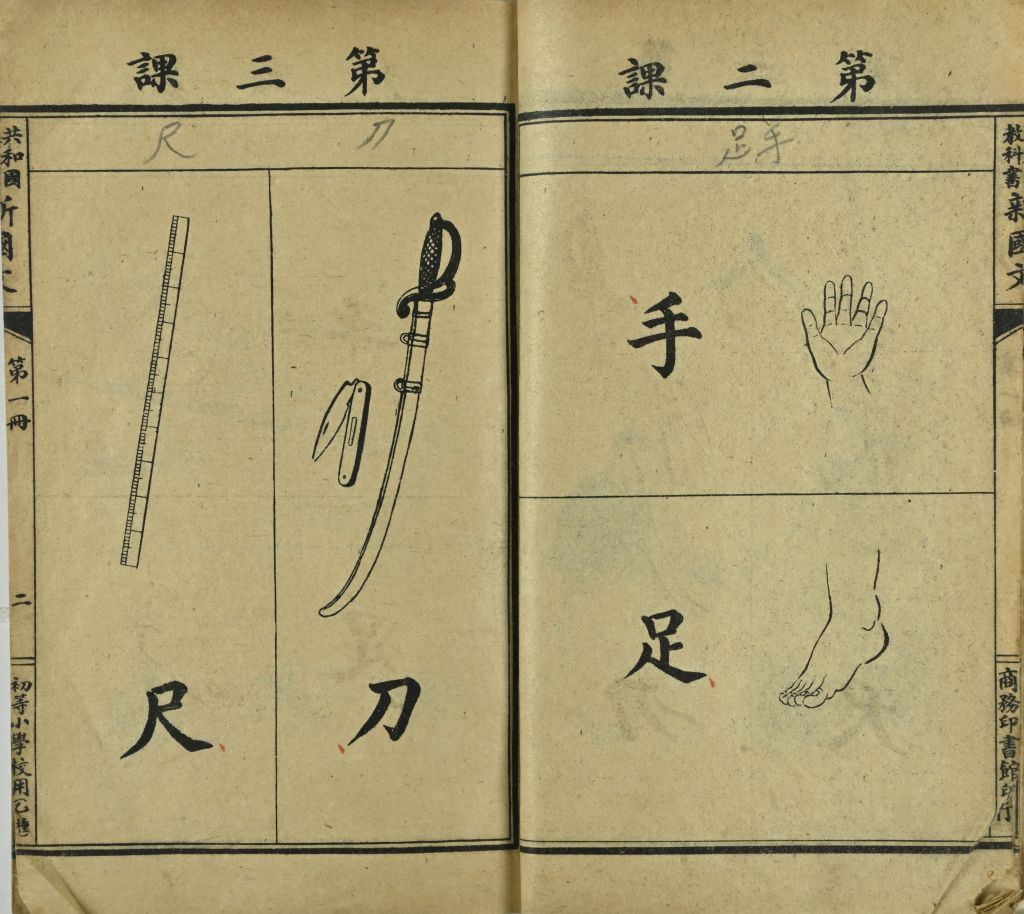 第二課
教科書新國文
商務印書館印行
手足
手
足
第三課
刀
尺
刀
尺
共和國新國文
第一冊
二
初等小學校用(乙種)